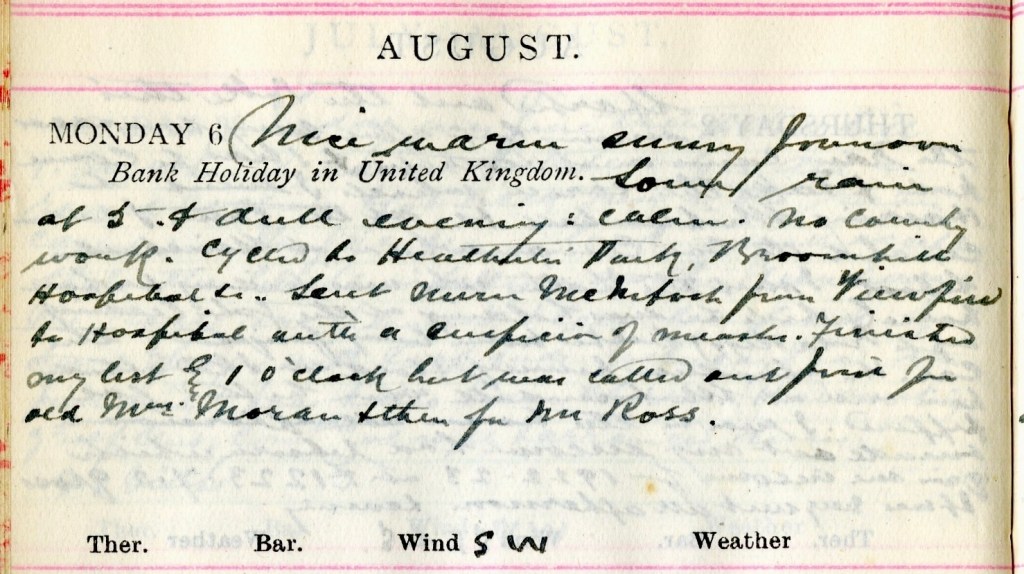 AUGUST.
MONDAY 6 Nice warm sunny forenoon
Bank Holiday in United Kingdom. Some rain
at 5. & dull evening: calm. No County
work. Cycled to Park, Broomhill
Hospital &c. Sent Nurse McIntosh from Viewfield
to Hospital with a suspicion of measles. Finished
my list by 1 O'clock but was called out first for
old Mrs. Moran & then for Mr Ross.
Ther. Bar. Wind S W Weather